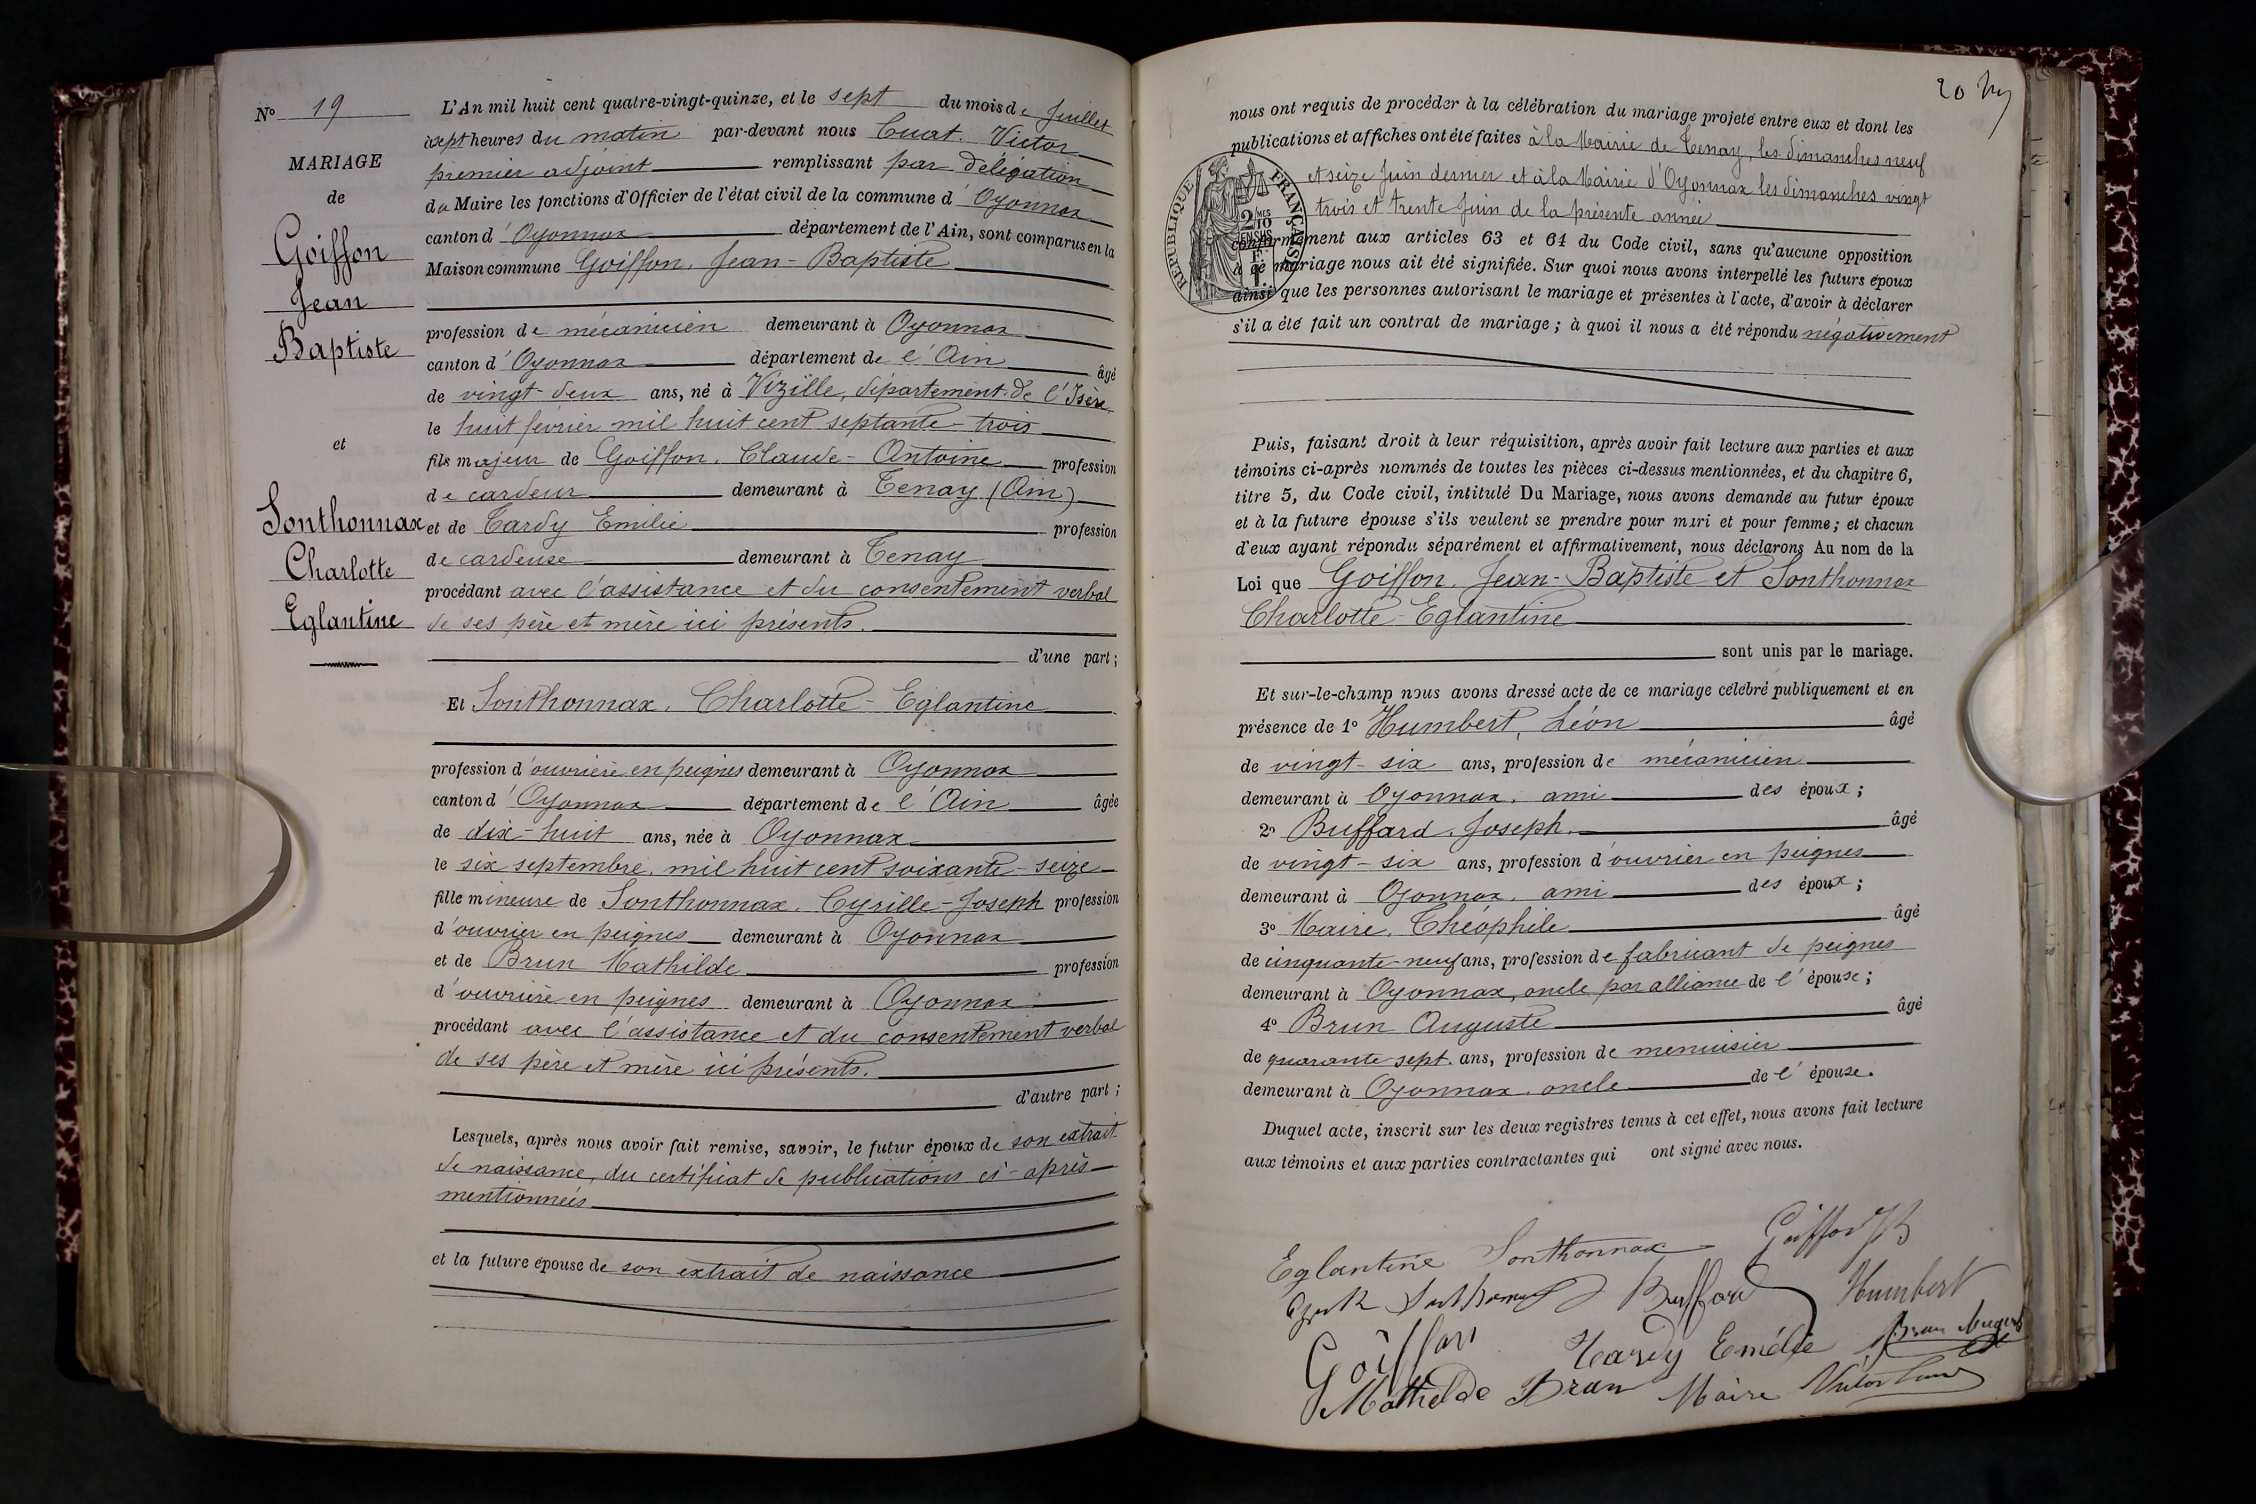 No 19
MARIAGE
de
Goiffon
Jean
Baptiste
et
Sonthonnax
Charlotte
Eglantine
L'An mil huit cent quatre-vingt-quinze, et le sept du mois de Juillet
à sept heures du matin par-devant nous Cuat. Victor
premier adjoint remplissant par délégation
du Maire les fonctions d'Officier de l'état civil de la commune d'Oyonnax
canton d'Oyonnax département de l'Ain, sont comparus en la
Maison commune Goiffon, Jean-Baptiste
profession de mécanicien demeurant à Oyonnax
canton d'Oyonnax département de l'Ain âgé
de vingt-deux ans, né à Vizille, département de l'Isère
le huit février mil huit cent septante-trois
fils majeur de Goiffon, Claude-Antoine profession
de cardeur demeurant à Tenay (Ain)
et de Tardy Emilie profession
de cardeuse demeurant à Tenay
procédant avec l'assistance et du consentement verbal
de ses père et mère ici présents.
d'une part;
Et Sonthonnax, Charlotte-Eglantine
profession d'ouvrière en peignes demeurant à Oyonnax
canton d'Oyonnax département de l'Ain âgée
de dix-huit ans, née à Oyonnax
le six septembre, mil huit cent soixante-seize
fille mineure de Sonthonnax, Cyrille-Joseph profession
d'ouvrier en peignes demeurant à Oyonnax
et de Brun Mathilde profession
d'ouvrière en peignes demeurant à Oyonnax
procédant avec l'assistance et du consentement verbal
de ses père et mère ici présents.
d'autre part;
Lesquels, après nous avoir fait remise, savoir, le futur époux de son extrait
de naissance, du certificat de publications ci-après
mentionnées
et la future épouse de son extrait de naissance
20
nous ont requis de procéder à la célébration du mariage projeté entre eux et dont les
publications et affiches ont été faites à la Mairie de Tenay, les dimanches neuf
et seize Juin dernier et à la Mairie d'Oyonnax les dimanches vingt
trois et trente Juin de la présente année
RÉPUBLIQUE FRANÇAISE
2/10 EN SUS
1 F.
conformément aux articles 63 et 64 du Code civil, sans qu'aucune opposition
à ce mariage nous ait été signifiée. Sur quoi nous avons interpellé les futurs époux
ainsi que les personnes autorisant le mariage et présentes à l'acte, d'avoir à déclarer
s'il a été fait un contrat de mariage; à quoi il nous a été répondu négativement
Puis, faisant droit à leur réquisition, après avoir fait lecture aux parties et aux
témoins ci-après nommés de toutes les pièces ci-dessus mentionnées, et du chapitre 6,
titre 5, du Code civil, intitulé Du Mariage, nous avons demandé au futur époux
et à la future épouse s'ils veulent se prendre pour mari et pour femme; et chacun
d'eux ayant répondu séparément et affirmativement, nous déclarons Au nom de la
Loi que Goiffon, Jean-Baptiste et Sonthonnax
Charlotte-Eglantine
sont unis par le mariage.
Et sur-le-champ nous avons dressé acte de ce mariage célébré publiquement et en
présence de 1o Humbert, Léon âgé
de vingt-six ans, profession de mécanicien
demeurant à Oyonnax, ami des époux;
2o Buffard, Joseph. âgé
de vingt-six ans, profession d'ouvrier en peignes
demeurant à Oyonnax, ami des époux;
3o Maire, Théophile âgé
de cinquante-neuf ans, profession de fabricant de peignes
demeurant à Oyonnax, oncle par alliance de l'épouse;
4o Brun Auguste âgé
de quarante sept. ans, profession de menuisier
demeurant à Oyonnax, oncle de l'épouse.
Duquel acte, inscrit sur les deux registres tenus à cet effet, nous avons fait lecture
aux témoins et aux parties contractantes qui ont signé avec nous.
Eglantine Sonthonnax Goiffon JB
Buffard Humbert
Goiffon Tardy Emélie Brun
Mathilde Brun Maire Victor Cuat